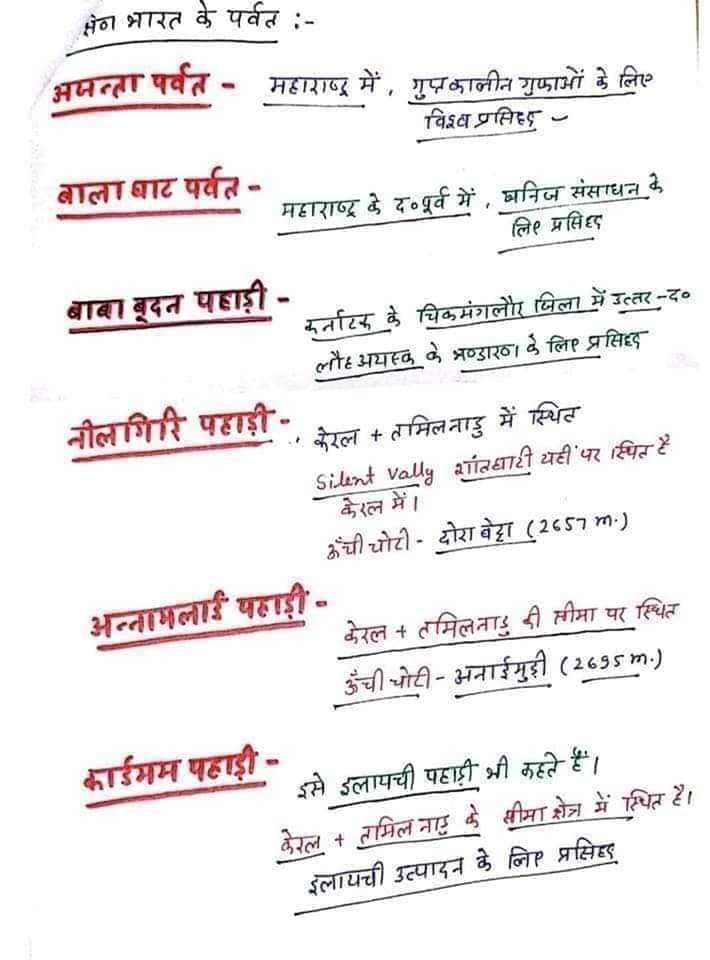 भारत के पर्वत :-
अजन्ता पर्वत - महाराष्ट्र में, गुप्तकालीन गुफाओं के लिए
विश्व प्रसिद्ध -
बाला घाट पर्वत - महाराष्ट्र के द०पूर्व में, खनिज संसाधन के
लिए प्रसिद्ध
बाबा बूदन पहाड़ी - कर्नाटक के चिकमंगलौर जिला में उत्तर-द०
लौह अयस्क के भण्डारण के लिए प्रसिद्ध
नीलगिरि पहाड़ी - केरल + तमिलनाडु में स्थित
Silent Vally शांतघाटी यहीं पर स्थित है
केरल में।
ऊँची चोटी - दोरा बेट्टा (2657 m.)
अन्नामलाई पहाड़ी - केरल + तमिलनाडु की सीमा पर स्थित
ऊँची चोटी - अनाईमुड़ी (2695 m.)
कार्डमम पहाड़ी - इसे इलायची पहाड़ी भी कहते हैं।
केरल + तमिल नाडु के सीमा क्षेत्र में स्थित है।
इलायची उत्पादन के लिए प्रसिद्ध